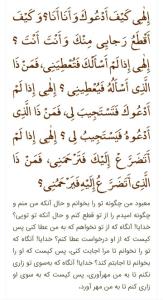 إِلٰهِي كَيْفَ أَدْعُوكَ وَ أَنَا أَنَا؟ وَ كَيْفَ
أَقْطَعُ رَجَايِي مِنْكَ وَ أَنْتَ أَنْتَ ؟
إِلٰهِي إِذَا لَمْ أَسْأَلْكَ فَتُعْطِيَنِي، فَمَنْ ذَا
الَّذِي أَسْأَلُهُ فَيُعْطِينِي ؟ إِلٰهِي إِذَا لَمْ
أَدْعُوكَ فَتَسْتَجِيبَ لِي، فَمَنْ ذَا الَّذِي
أَدْعُوهُ فَيَسْتَجِيبَ لِي ؟ إِلٰهِي إِذَا لَمْ
أَتَضَرَّعْ إِلَيْكَ فَتَرْحَمُنِي، فَمَنْ ذَا
الَّذِي أَتَضَرَّعُ إِلَيْهِ فَيَرْحَمُنِي؟
معبود من چگونه تو را بخوانم و حال آنکه من منم و
چگونه امیدم را از تو قطع کنم و حال آنکه تو تویی؟
خدایا! آنگاه که از تو نخواهم که به من عطا کنی پس
کیست که از او درخواست عطا کنم؟ خدایا! آنگاه که
تو را نخوانم تا مرا اجابت کنی، پس کیست که او را
بخوانم تا اجابتم کند؟ خدایا! آنگاه که به‌سوی تو زاری
نکنم تا به من مهرآوری، پس کیست که به سوی او
زاری کنم تا به من مهر ورزد؟